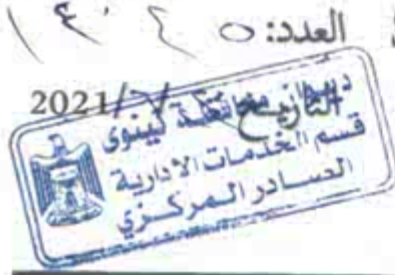 العدد:
التاريخ / /2021
ديوان محافظة نينوى
قسم الخدمات الادارية
الصادر المركزي